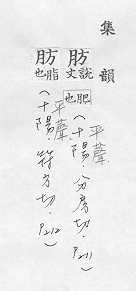 集韻
肪說文肥也(平聲十陽,分房切,P211)
肪脂也(平聲十陽,符方切,P212)